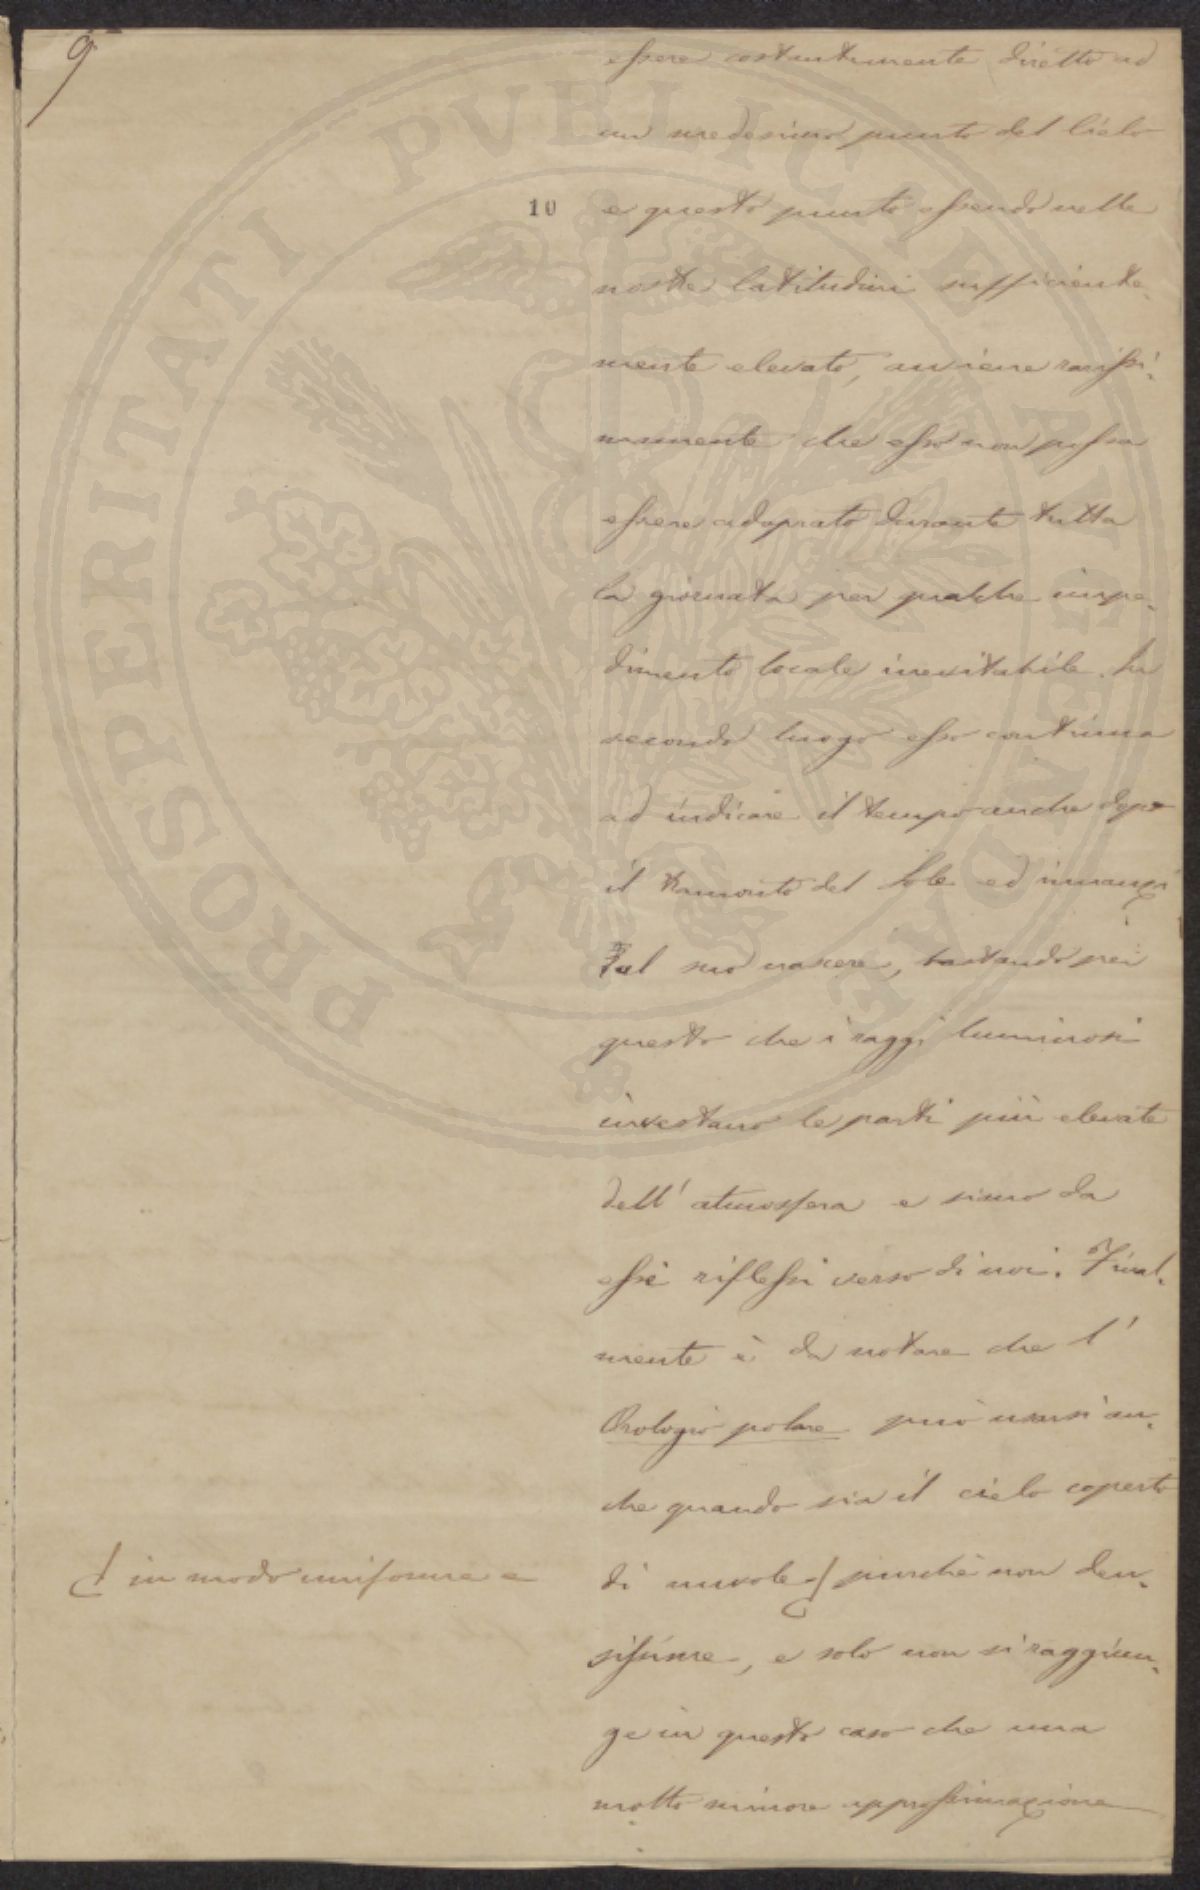 9
essere costantemente diretto ad
un medesimo punto del Cielo
10
e questo punto essendo nelle
nostre latitudini sufficiente-
mente elevato, avviene rarissi-
mamente che esso non possa
essere adoprato durante tutta
la giornata per qualche impe-
dimento locale inevitabile. In
secondo luogo esso continua
ad indicare il tempo anche dopo
il tramonto del Sole ed innanzi
dal suo nascere, bastando per
questo che i raggi luminosi
investano le parti più elevate
dell' atmosfera e sieno da
esse riflessi verso di noi. Final-
mente è da notare che l'
Orologio polare può usarsi an-
che quando sia il cielo coperto
in modo uniforme e
di nuvole purchè non den-
sissime, e solo non si raggiun-
ge in questo caso che una
molto minore approssimazione
PROSPERITATI PVBLICAE AVGENDAE